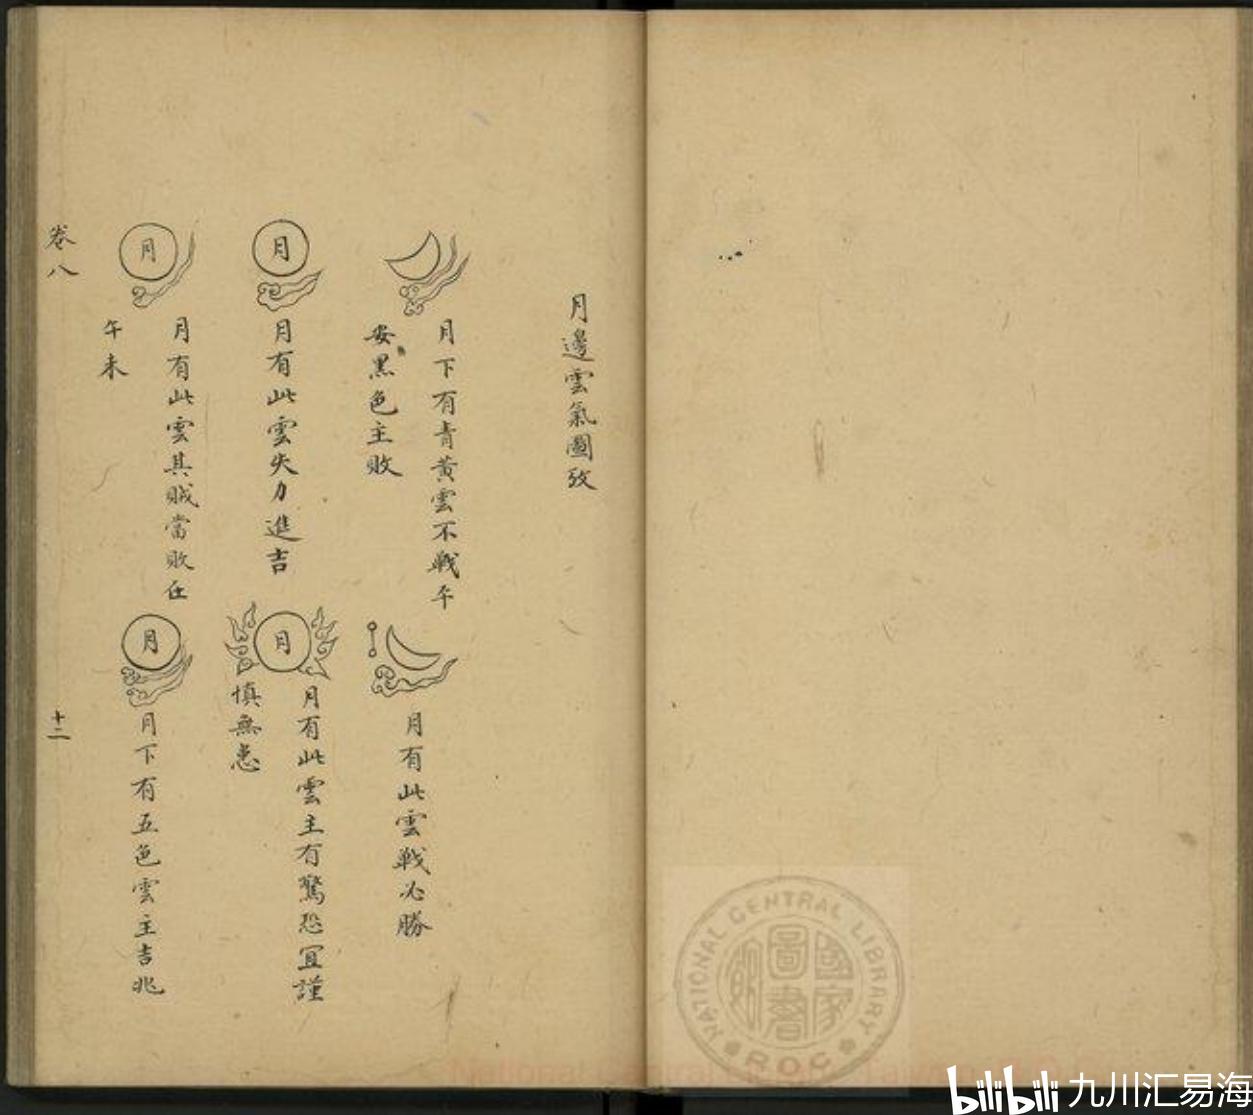 月邊雲氣圖攷
月下有青黃雲不戰平
安黑色主敗
月有此雲戰必勝
月
月有此雲失力進吉
月
月有此雲主有驚恐宜謹
慎無患
月
月有此雲其賊當敗在
午未
月
月下有五色雲主吉兆
卷八
十二
NATIONAL CENTRAL LIBRARY
R.O.C
國家圖書館
bilibili 九川汇易海